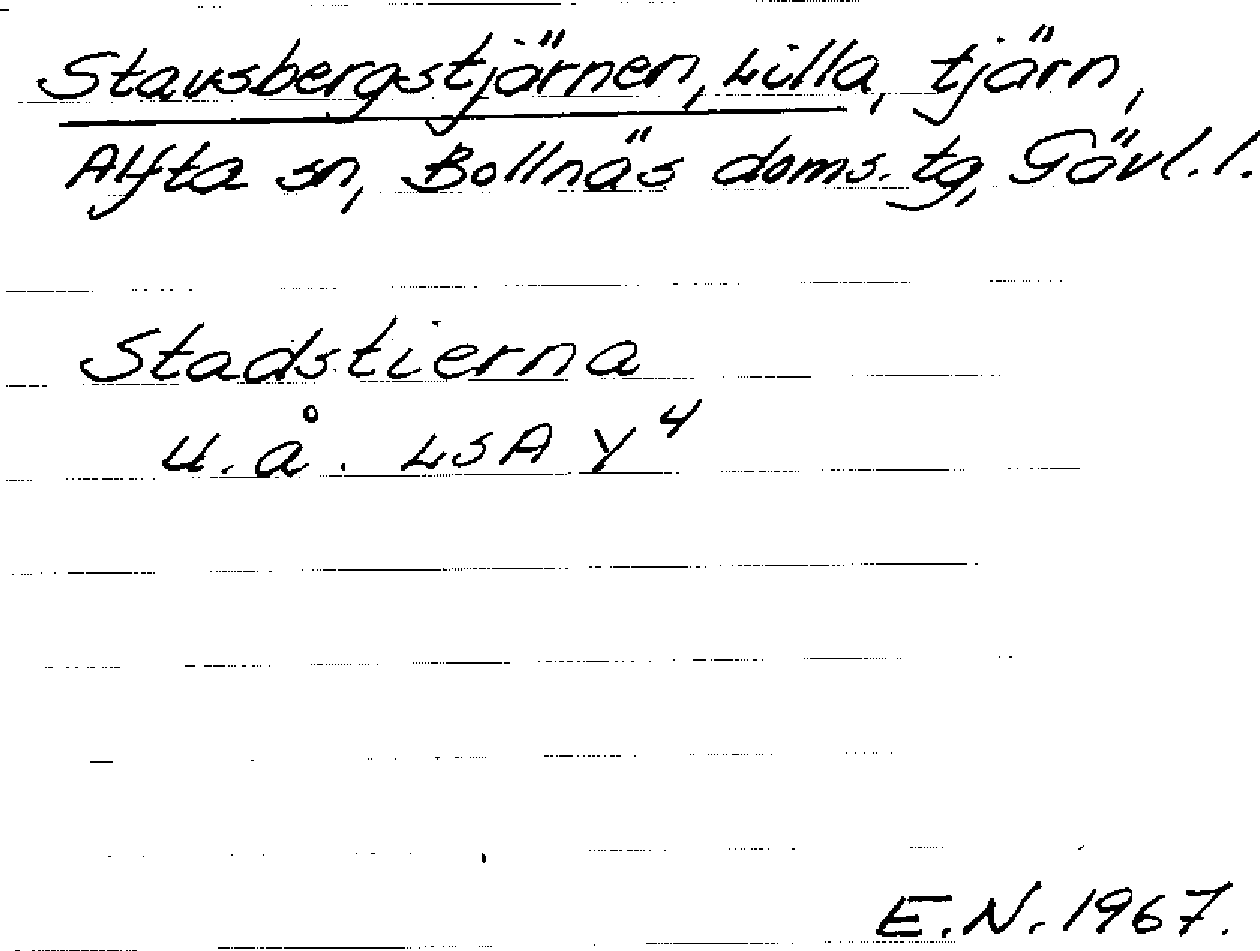 Stavsbergstjärnen, Lilla, tjärn,
Alfta sn, Bollnäs doms. tg, Gävl.l.
Stadstierna
u.å. LSA Y4
E.N. 1967.